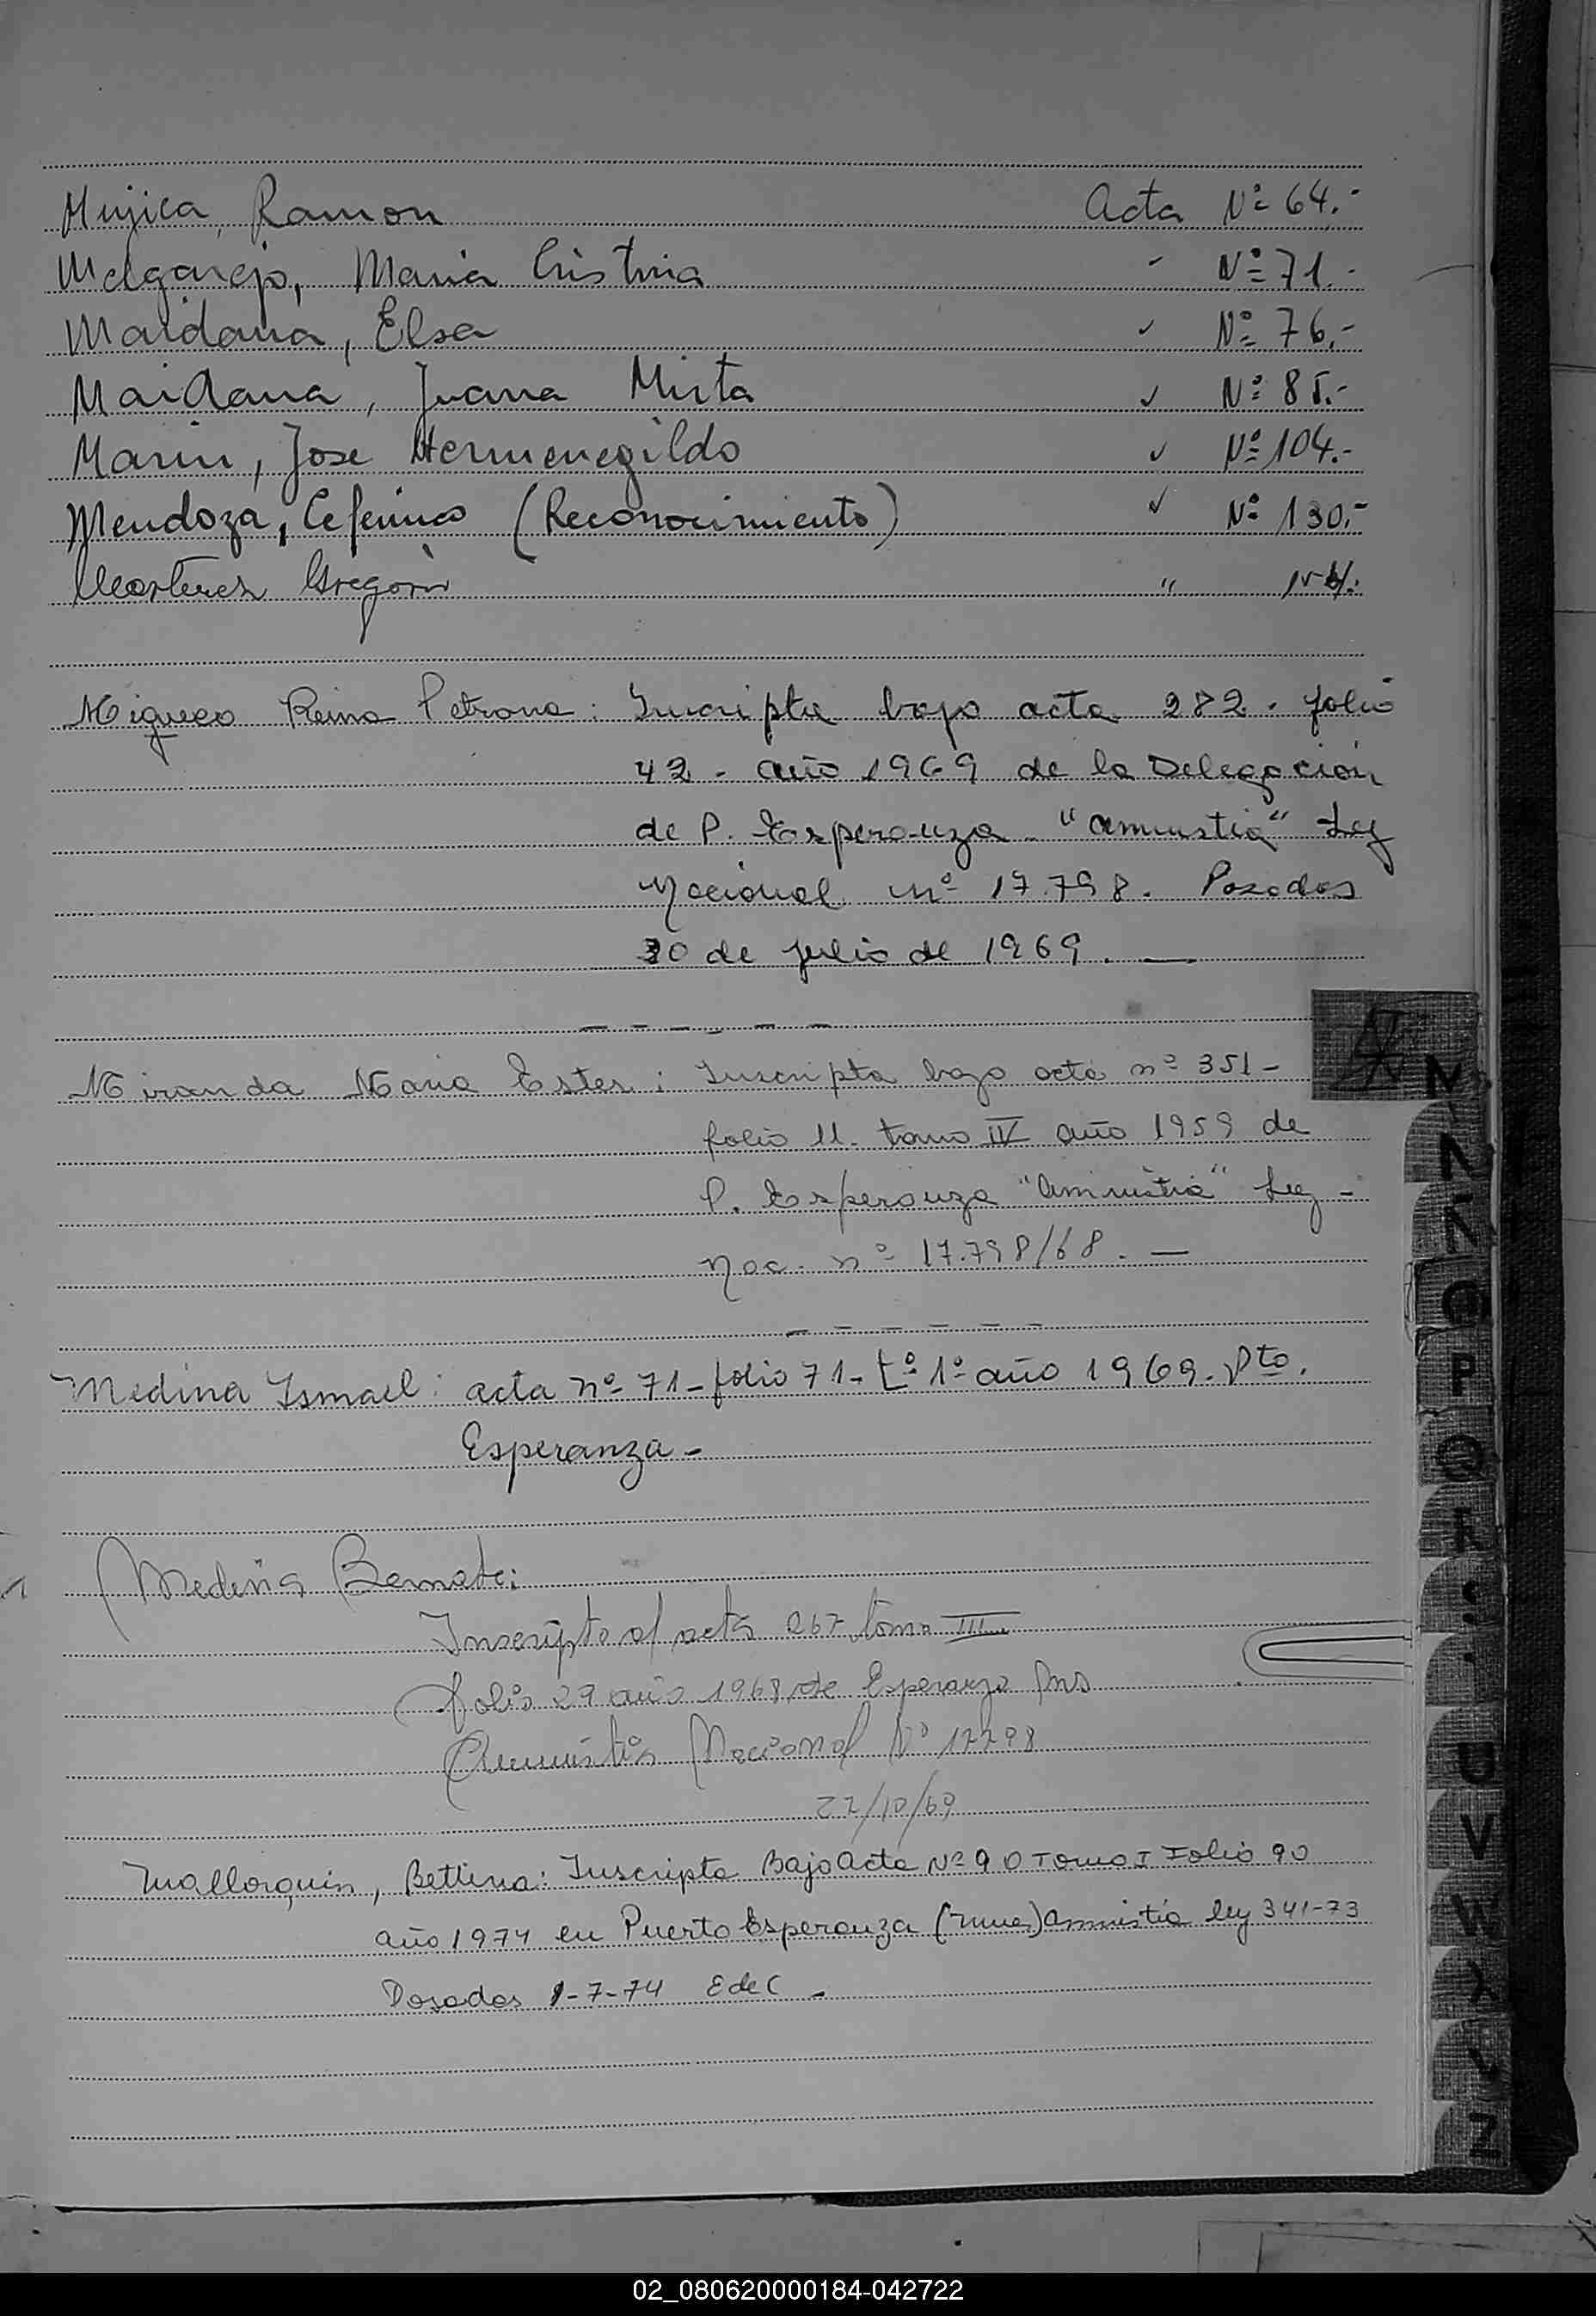 Mujica, Ramon Acta Nº 64.-
Melgarejo, Maria Cristina - Nº 71.-
Maidana, Elsa ✓ Nº 76.-
Maidana, Juana Mirta ✓ Nº 85.-
Marin, Jose Hermenegildo ✓ Nº 104.-
Mendoza, Ceferino (Reconocimiento) ✓ Nº 130.-
Gregorio "
Reina Petrona: Inscripta bajo acta 282. folio
42 - año 1969 de la Delegación
de P. Esperanza "amnistia" Ley
Nacional nº 17.798. Posadas
30 de julio de 1969. —
Miranda Maria Ester: Inscripta bajo acta nº 351 -
folio 11. tomo IV año 1959 de
P. Esperanza "Amnistia" Ley -
Nac. nº 17.798/68. —
Medina Ismael: acta nº 71 - folio 71 - tº 1º año 1969. Pto.
Esperanza -
Medina
Inscripto al acta 267 tomo III
folio 29 año 1968 de Esperanza Mns
Amnistia Nacional Nº 17798
27/10/69
Mallorquin, Bettina: Inscripta Bajo Acta Nº 90 Tomo I Folio 90
año 1974 en Puerto Esperanza (Mnes) amnistia ley 341-73
Posadas 1-7-74 E de C -
N
N
Ñ
O
P
Q
U
V
W
X
Y
Z
02_080620000184-042722